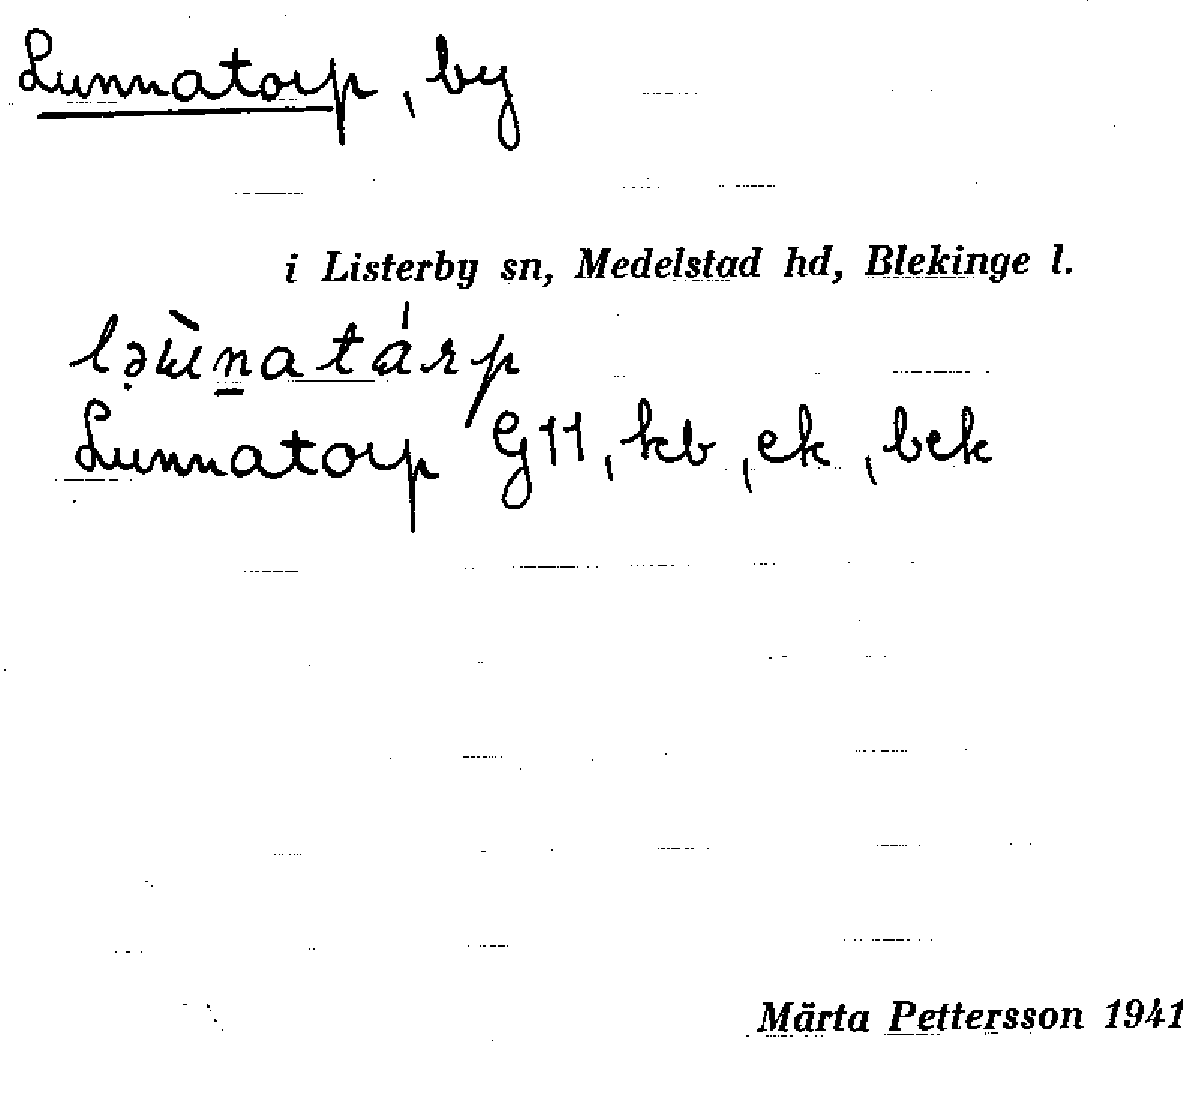 Lunnatorp, by
i Listerby sn, Medelstad hd, Blekinge l.
Lunnatorp G11, kb, ek, bek
Märta Pettersson 1941